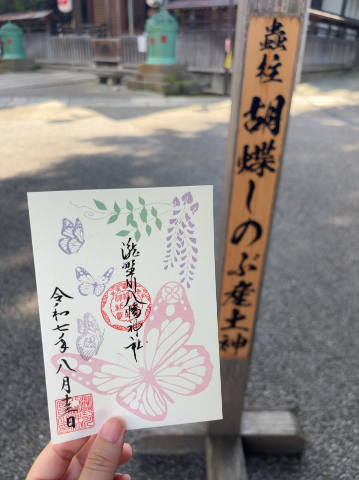 蟲柱 胡蝶しのぶ産土神
瀧野川八幡神社
令和七年八月日